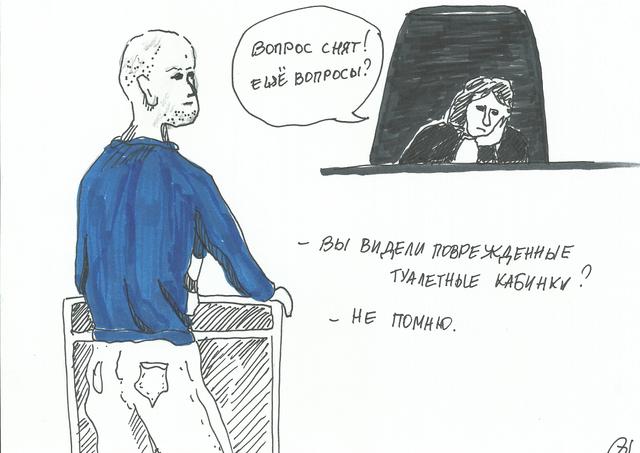 ВОПРОС СНЯТ!
ЕЩЁ ВОПРОСЫ?
- ВЫ ВИДЕЛИ ПОВРЕЖДЕННЫЕ
ТУАЛЕТНЫЕ КАБИНКИ?
- НЕ ПОМНЮ.